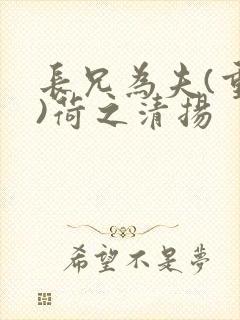 長兄為夫(重
)荷之清揚
希望不是夢